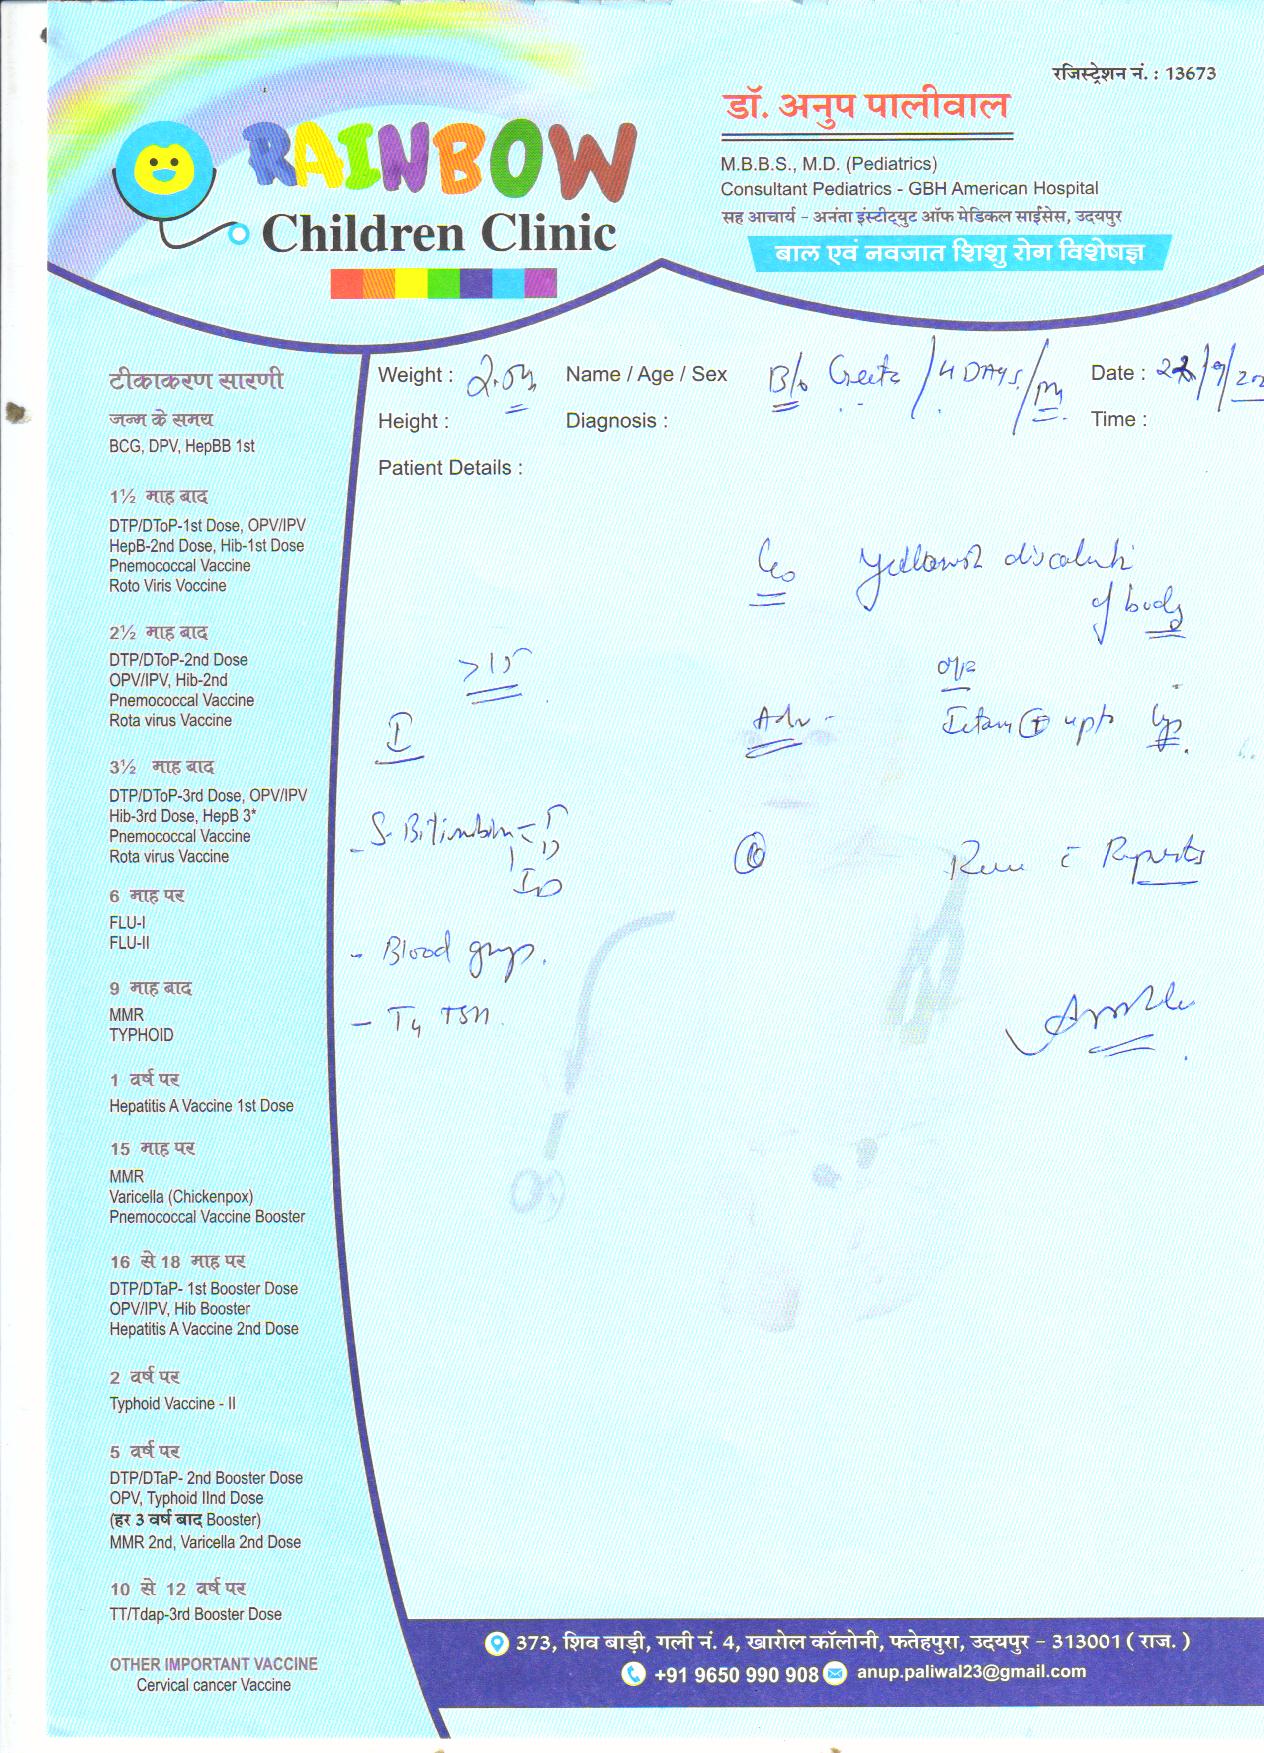 रजिस्ट्रेशन नं. : 13673
डॉ. अनुप पालीवाल
RAINBOW
Children Clinic
M.B.B.S., M.D. (Pediatrics)
Consultant Pediatrics - GBH American Hospital
सह आचार्य - अनंता इंस्टीट्युट ऑफ मेडिकल साईंसेस, उदयपुर
बाल एवं नवजात शिशु रोग विशेषज्ञ
Weight : Name / Age / Sex B/o Geeta / 4 DAYS / m Date :
Height : Diagnosis : Time :
Patient Details :
टीकाकरण सारणी
जन्म के समय
BCG, DPV, HepBB 1st
1½ माह बाद
DTP/DToP-1st Dose, OPV/IPV
HepB-2nd Dose, Hib-1st Dose
Pnemococcal Vaccine
Roto Viris Voccine
2½ माह बाद
DTP/DToP-2nd Dose
OPV/IPV, Hib-2nd
Pnemococcal Vaccine
Rota virus Vaccine
3½ माह बाद
DTP/DToP-3rd Dose, OPV/IPV
Hib-3rd Dose, HepB 3*
Pnemococcal Vaccine
Rota virus Vaccine
6 माह पर
FLU-I
FLU-II
9 माह बाद
MMR
TYPHOID
1 वर्ष पर
Hepatitis A Vaccine 1st Dose
15 माह पर
MMR
Varicella (Chickenpox)
Pnemococcal Vaccine Booster
16 से 18 माह पर
DTP/DTaP- 1st Booster Dose
OPV/IPV, Hib Booster
Hepatitis A Vaccine 2nd Dose
2 वर्ष पर
Typhoid Vaccine - II
5 वर्ष पर
DTP/DTaP- 2nd Booster Dose
OPV, Typhoid IInd Dose
(हर 3 वर्ष बाद Booster)
MMR 2nd, Varicella 2nd Dose
10 से 12 वर्ष पर
TT/Tdap-3rd Booster Dose
OTHER IMPORTANT VACCINE
Cervical cancer Vaccine
C/o Yellowish
of body
>15
O/E
Adv - upto
- S. Bilirubin
Reports
- Blood group.
- T4 TSH
373, शिव बाड़ी, गली नं. 4, खारोल कॉलोनी, फतेहपुरा, उदयपुर - 313001 ( राज. )
+91 9650 990 908 anup.paliwal23@gmail.com